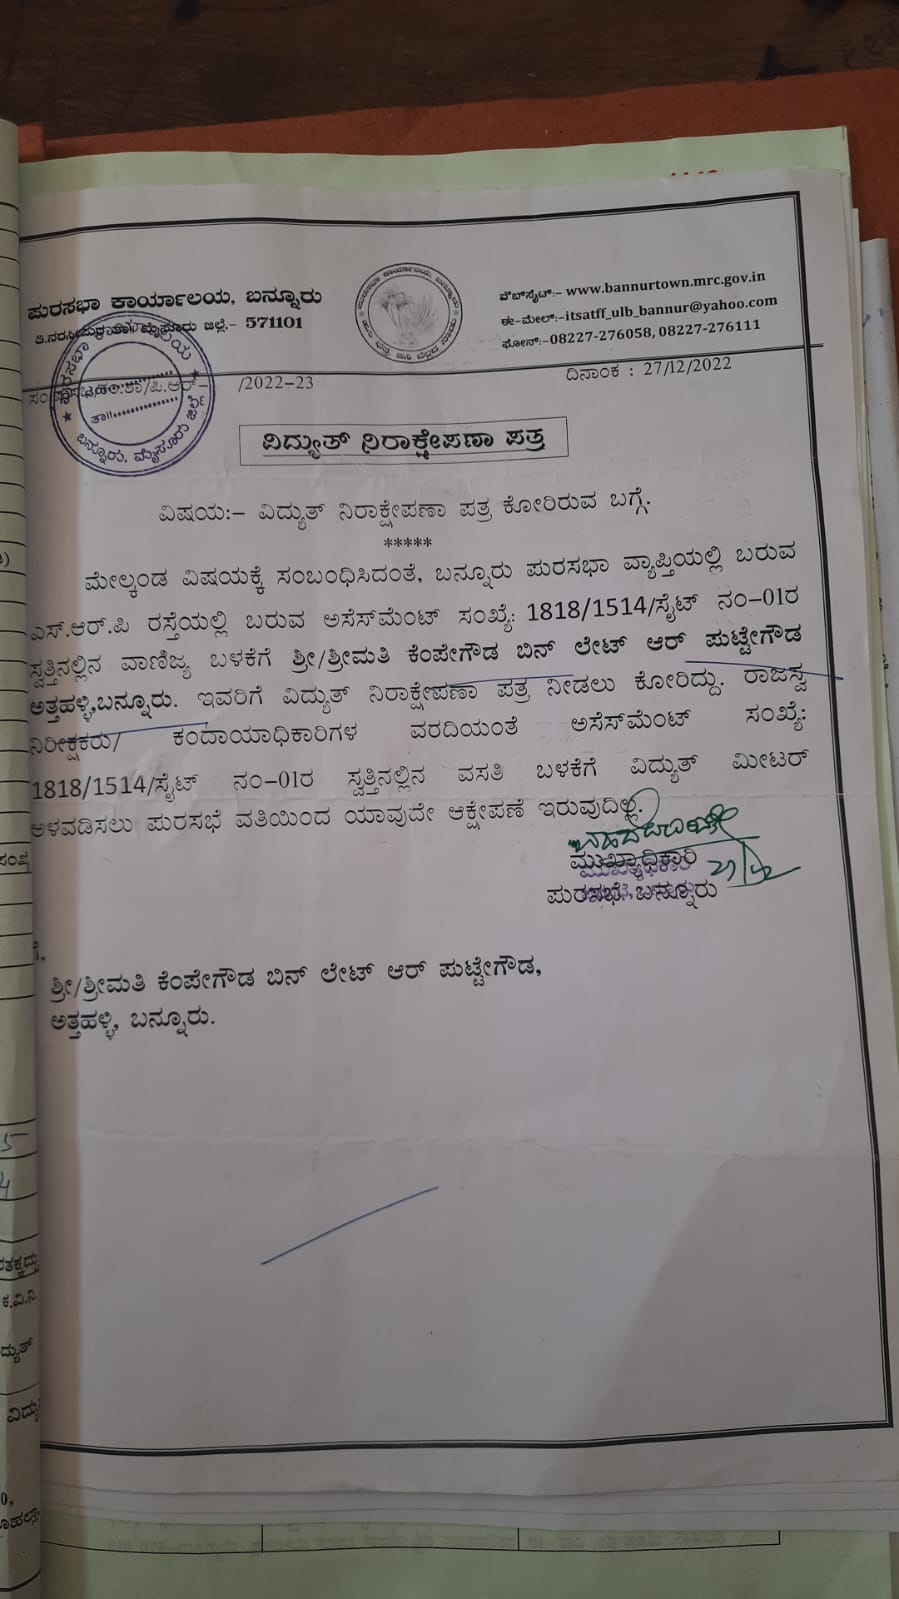 ಪುರಸಭಾ ಕಾರ್ಯಾಲಯ, ಬನ್ನೂರು
ತಿ.ನರಸೀಪುರ ತಾ॥ ಮೈಸೂರು ಜಿಲ್ಲೆ.- 571101
ವೆಬ್‌ಸೈಟ್:- www.bannurtown.mrc.gov.in
ಈ-ಮೇಲ್:-itsatff_ulb_bannur@yahoo.com
ಫೋನ್:-08227-276058, 08227-276111
/ಪಿ.ಆರ್- /2022-23
ದಿನಾಂಕ : 27/12/2022
ತಾ॥
ಬನ್ನೂರು, ಮೈಸೂರು ಜಿಲ್ಲೆ
ವಿದ್ಯುತ್ ನಿರಾಕ್ಷೇಪಣಾ ಪತ್ರ
ವಿಷಯ:- ವಿದ್ಯುತ್ ನಿರಾಕ್ಷೇಪಣಾ ಪತ್ರ ಕೋರಿರುವ ಬಗ್ಗೆ.
*****
ಮೇಲ್ಕಂಡ ವಿಷಯಕ್ಕೆ ಸಂಬಂಧಿಸಿದಂತೆ, ಬನ್ನೂರು ಪುರಸಭಾ ವ್ಯಾಪ್ತಿಯಲ್ಲಿ ಬರುವ
ಎಸ್.ಆರ್.ಪಿ ರಸ್ತೆಯಲ್ಲಿ ಬರುವ ಅಸೆಸ್‌ಮೆಂಟ್ ಸಂಖ್ಯೆ: 1818/1514/ಸೈಟ್ ನಂ-01ರ
ಸ್ವತ್ತಿನಲ್ಲಿನ ವಾಣಿಜ್ಯ ಬಳಕೆಗೆ ಶ್ರೀ/ಶ್ರೀಮತಿ ಕೆಂಪೇಗೌಡ ಬಿನ್ ಲೇಟ್ ಆರ್ ಪುಟ್ಟೇಗೌಡ
ಅತ್ತಹಳ್ಳಿ,ಬನ್ನೂರು. ಇವರಿಗೆ ವಿದ್ಯುತ್ ನಿರಾಕ್ಷೇಪಣಾ ಪತ್ರ ನೀಡಲು ಕೋರಿದ್ದು. ರಾಜಸ್ವ
ನಿರೀಕ್ಷಕರು/ ಕಂದಾಯಾಧಿಕಾರಿಗಳ ವರದಿಯಂತೆ ಅಸೆಸ್‌ಮೆಂಟ್ ಸಂಖ್ಯೆ:
1818/1514/ಸೈಟ್ ನಂ-01ರ ಸ್ವತ್ತಿನಲ್ಲಿನ ವಸತಿ ಬಳಕೆಗೆ ವಿದ್ಯುತ್ ಮೀಟರ್
ಅಳವಡಿಸಲು ಪುರಸಭೆ ವತಿಯಿಂದ ಯಾವುದೇ ಆಕ್ಷೇಪಣೆ ಇರುವುದಿಲ್ಲ.
ಮುಖ್ಯಾಧಿಕಾರಿ
ಪುರಸಭೆ, ಬನ್ನೂರು
ಗೆ,
ಶ್ರೀ/ಶ್ರೀಮತಿ ಕೆಂಪೇಗೌಡ ಬಿನ್ ಲೇಟ್ ಆರ್ ಪುಟ್ಟೇಗೌಡ,
ಅತ್ತಹಳ್ಳಿ, ಬನ್ನೂರು.